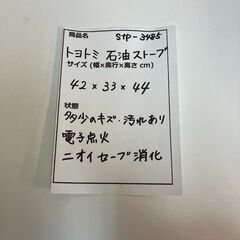 商品名 STP-3485
トヨトミ 石油ストーブ
サイズ(幅×奥行×高さ cm)
42×33×44
状態
多少のキズ・汚れあり
電子点火
ニオイセーブ消化